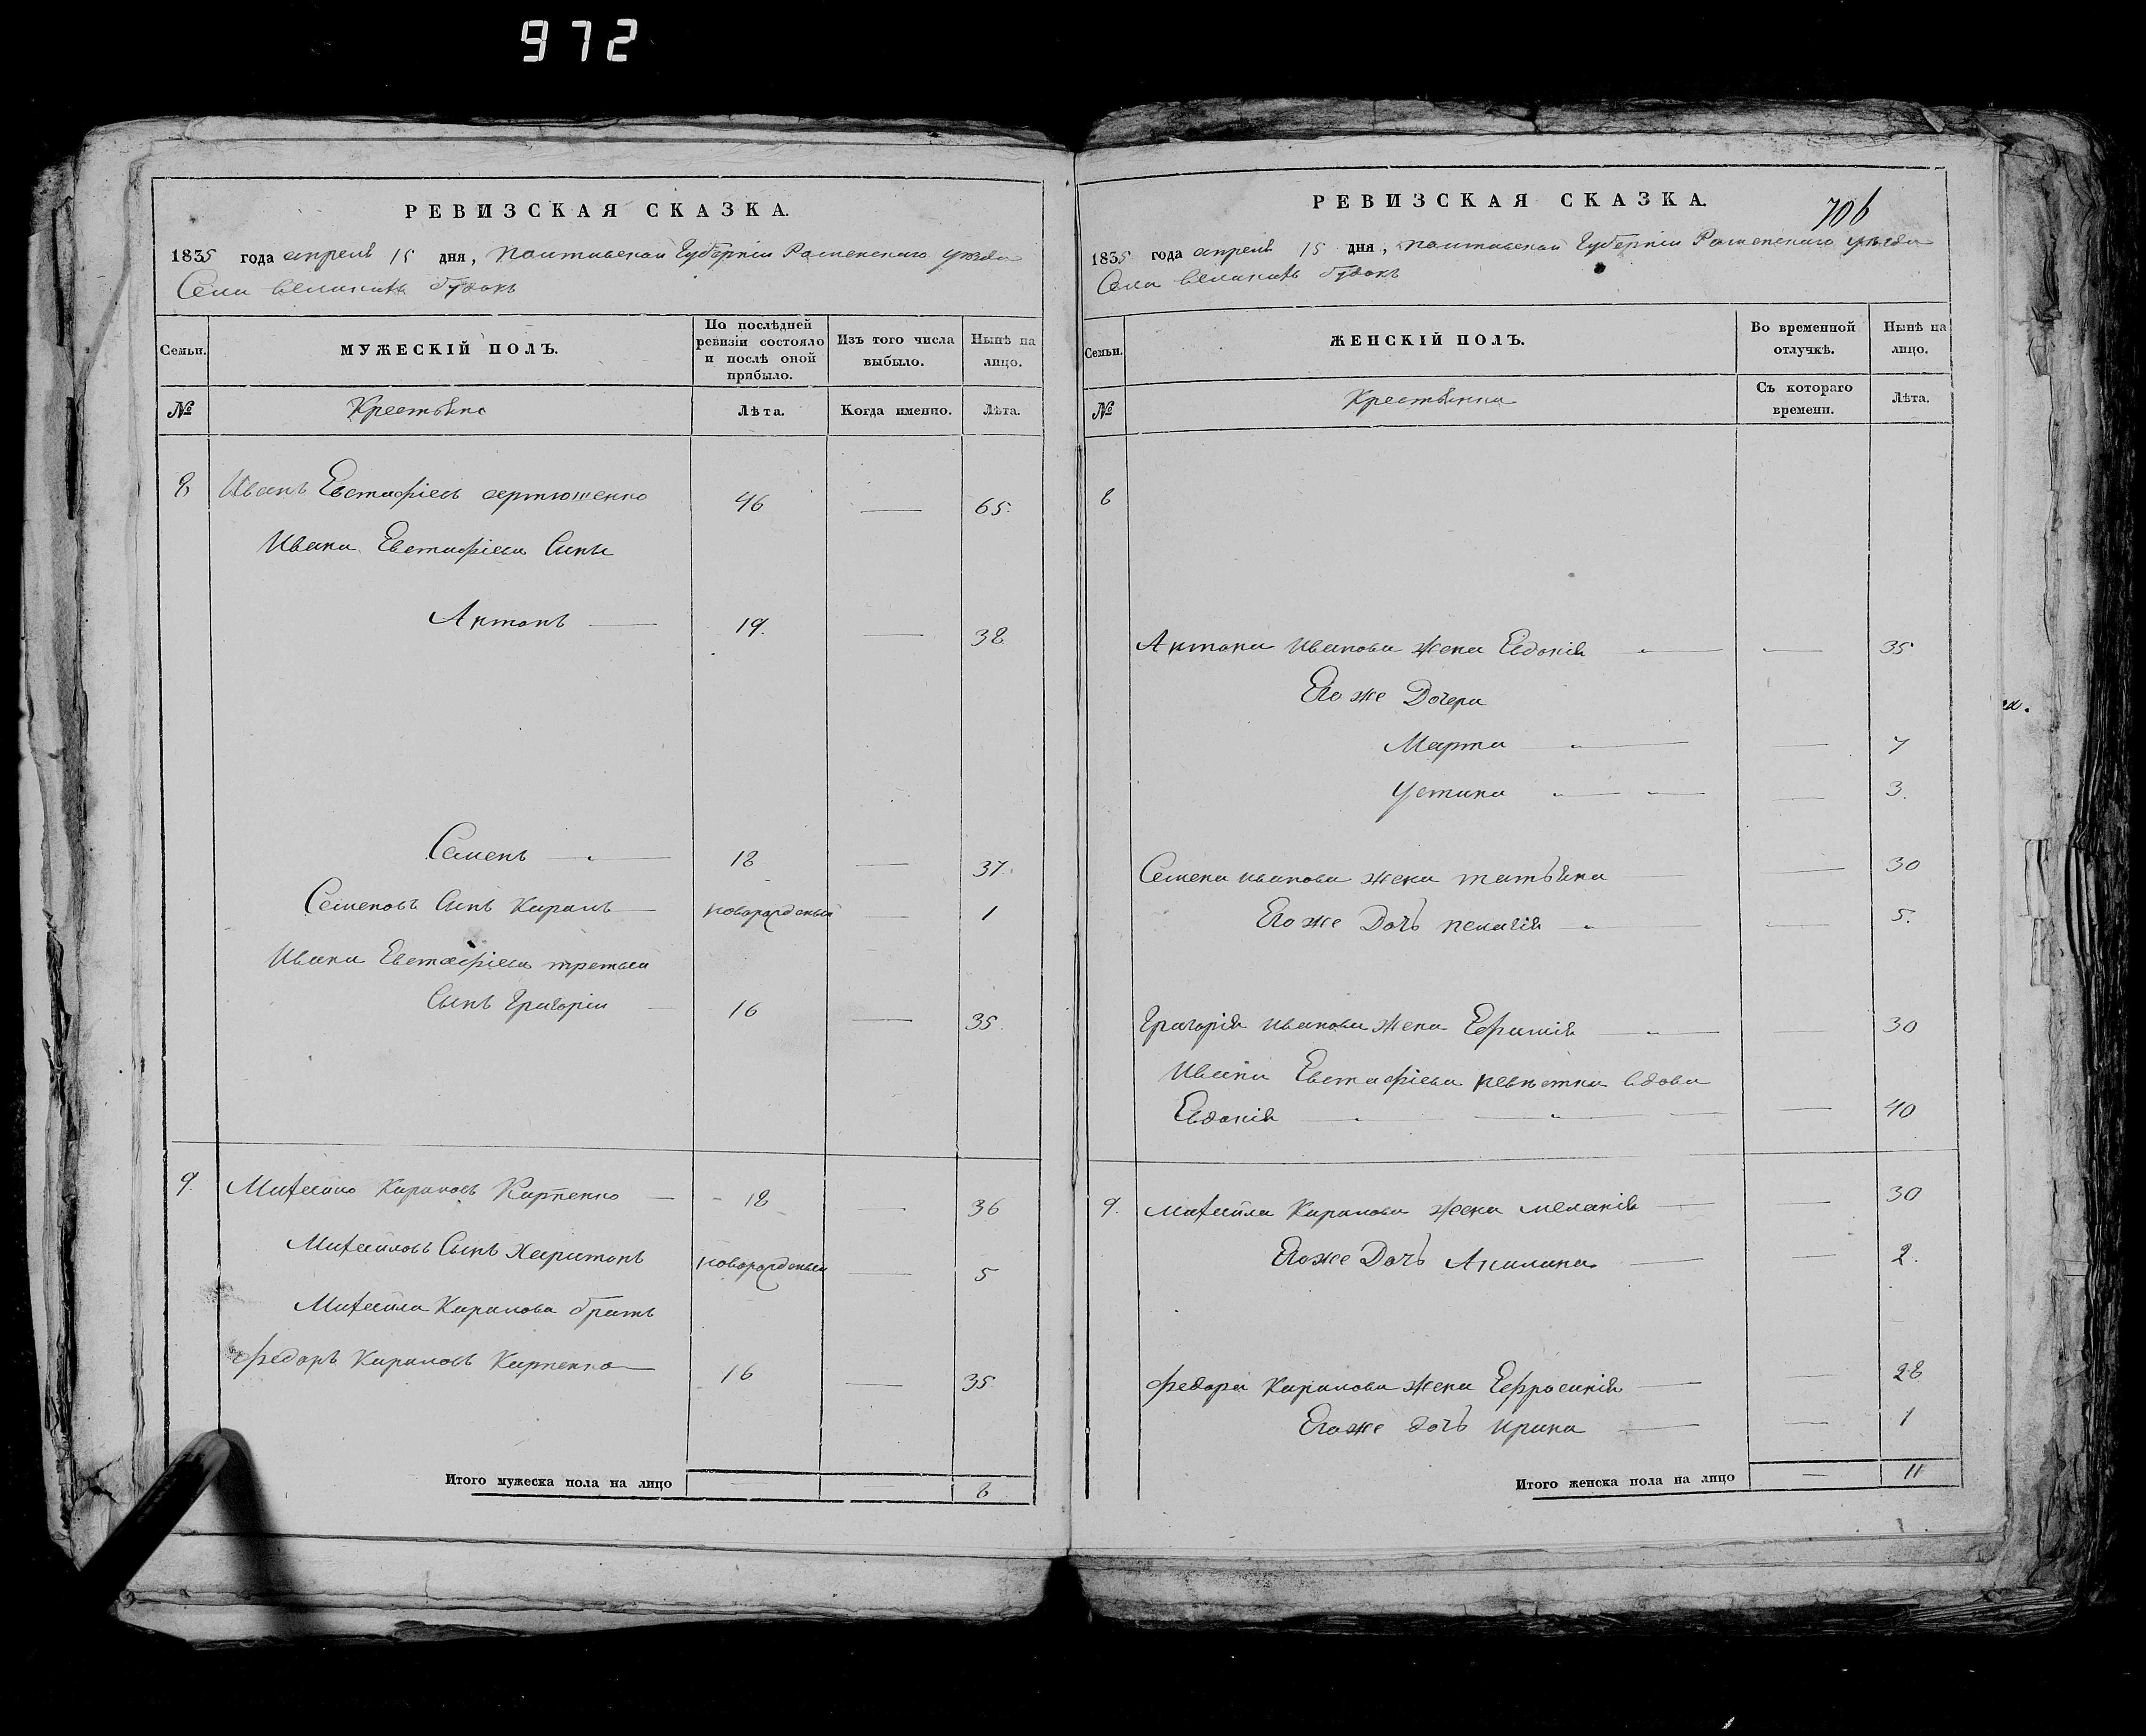 972
РЕВИЗСКАЯ СКАЗКА.
1835 года апреля 15 дня, Полтавской Губерніи Роменскаго уезда
Села великихъ будокъ
Семьи.
МУЖЕСКІЙ ПОЛЪ.
По послѣдней ревизіи состояло и послѣ оной прибыло.
Изъ того числа выбыло.
Нынѣ на лицо.
№
Крестьяне
Лѣта.
Когда именно.
Лѣта.
8 Иванъ Евстафіевъ артюшенко 46 — 65.
Ивана Евстафіева Сыны
Антонъ — 19. — 38
Семенъ — 18 — 37.
Семеновъ Сынъ Кирилъ — новорожденный — 1
Ивана Евстафіева третий
Сынъ Григорій — 16 — 35.
9. Михайло Кириловъ Карпенко — 18 — 36
Михайловъ Сынъ Харитонъ новорожденный — 5
Михайла Кирилова братъ
Федоръ Кириловъ Карпенко — 16 — 35
Итого мужеска пола на лицо — — 8
РЕВИЗСКАЯ СКАЗКА.
706
1835 года апреля 15 дня, полтавской Губерніи Роменскаго уезда
Села великихъ будокъ
Семьи.
ЖЕНСКІЙ ПОЛЪ.
Во временной отлучкѣ.
Нынѣ на лицо.
№
Крестьянки
Съ котораго времени.
Лѣта.
8
Антона Иванова жена Евдокія — — 35
Его же Дочери
Марта — — 7
Устина — — — 3.
Семена иванова жена татьяна — — 30
Его же Дочь пелагія — — 5.
Григорія иванова жена Ефимія — — 30
Ивана Евстафіева невѣстка вдова
Евдокія — — — — 40
9. михайла Кирилова жена меланія — — 30
Его же Дочь Акилина — — 2.
Федора Кирилова жена Ефросинія — — 28
Его же дочь ирина — — 1
Итого женска пола на лицо — 11